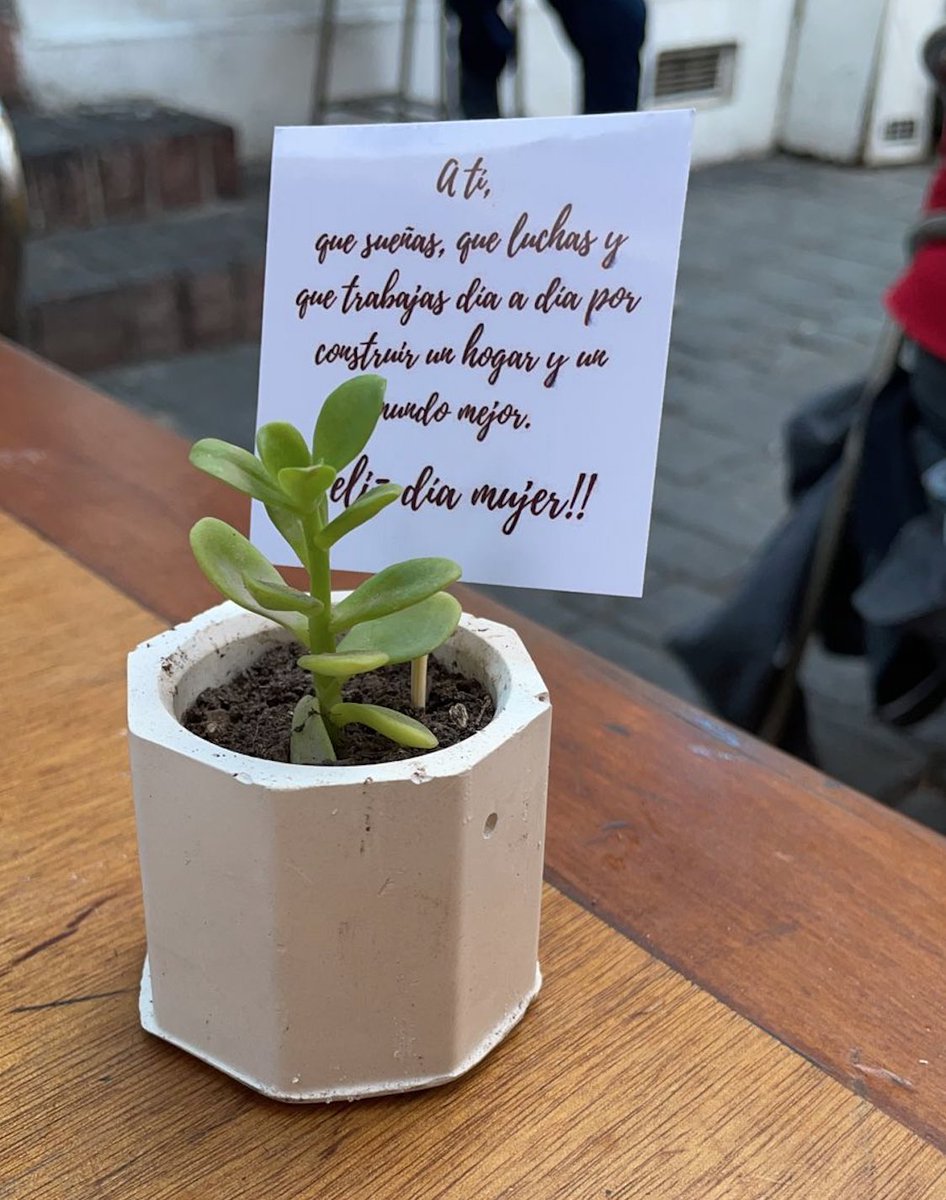 A ti,
que sueñas, que luchas y
que trabajas día a día por
construir un hogar y un
mundo mejor.
Feliz día mujer!!